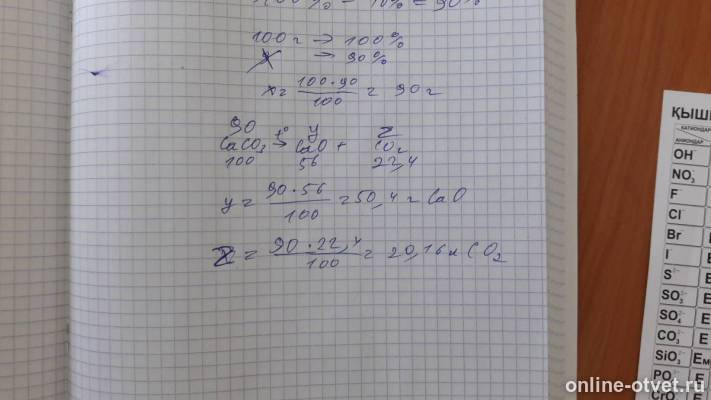 100% - 10% = 90%
100 г → 100%
x → 90%
x = 100 · 90 / 100 = 90 г
90 y z
CaCO3 t° → CaO + CO2
100 56 22,4
y = 90 · 56 / 100 = 50,4 г CaO
z = 90 · 22,4 / 100 = 20,16 л CO2
ҚЫШ
КАТИОНДАР
АНИОНДАР
OH
NO3
F
Cl
Br
I
S
SO3
SO4
CO3 Е
SiO3 Ем
PO Е
CrO
online-otvet.ru